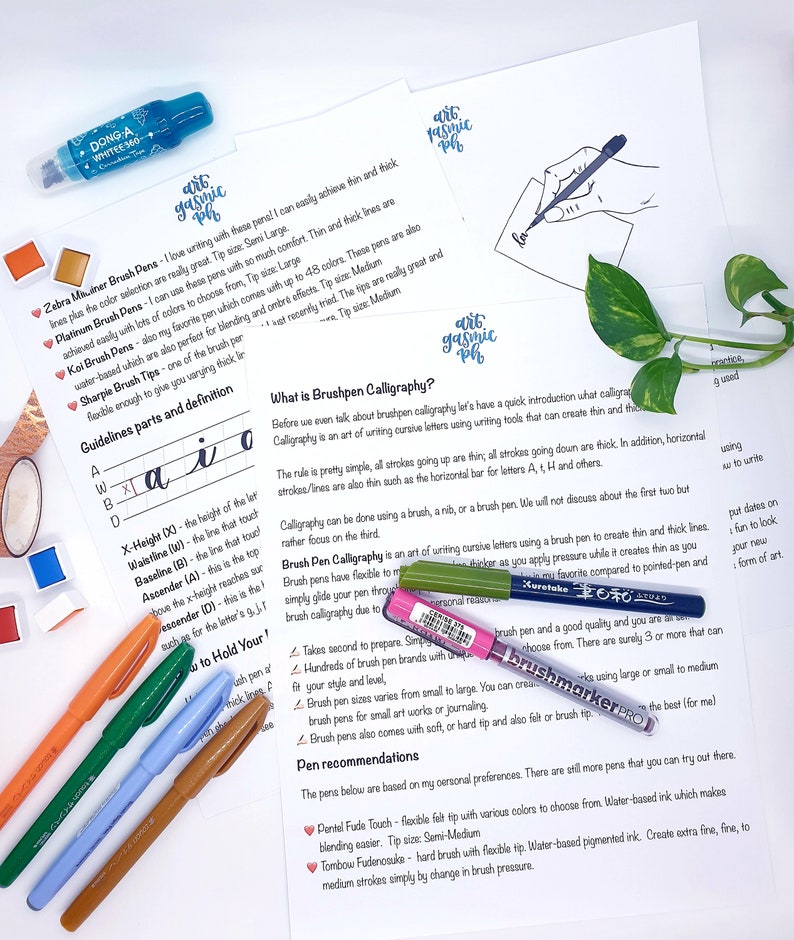 DONG-A
WHITEE360
Correction Tape
art
gasmic
ph
Zebra Mildliner Brush Pens - I love writing with these pens! I can easily achieve thin and thick
lines plus the color selection are really great. Tip size: Semi Large.
Platinum Brush Pens - I can use these pens with so much comfort. Thin and thick lines are
achieved easily with lots of colors to choose from, Tip size: Large
Koi Brush Pens - also my favorite pen which comes with up to 48 colors. These pens are also
water-based which are also perfect for blending and ombré effects. Tip size: Medium
Sharpie Brush Tips - one of the brush pen I just recently tried. The tips are really great and
flexible enough to give you varying thick lin ure. Tip size: Medium
Guidelines parts and definition
A
W
B
D
X
a i a
X-Height (X) - the height of the let
Waistline (W) - the line that touch
Baseline (B) - the line that touch
Ascender (A) - this is the top
above the x-height reaches suc
Descender (D) - this is the
such as for the letter's g, j,
ow to Hold Your
ush pen a
thick lines. A
see
art
gasmic
ph
lov
practice,
g used
using
ow to write
put dates on
s fun to look
your new
s form of art.
art
gasmic
ph
What is Brushpen Calligraphy?
Before we even talk about brushpen calligraphy let's have a quick introduction what calligrap
Calligraphy is an art of writing cursive letters using writing tools that can create thin and thic
The rule is pretty simple, all strokes going up are thin; all strokes going down are thick. In addition, horizontal
strokes/lines are also thin such as the horizontal bar for letters A, t, H and others.
Calligraphy can be done using a brush, a nib, or a brush pen. We will not discuss about the first two but
rather focus on the third.
Brush Pen Calligraphy is an art of writing cursive letters using a brush pen to create thin and thick lines.
Brush pens have flexible to m thicker as you apply pressure while it creates thin as you
simply glide your pen throug is my favorite compared to pointed-pen and
brush calligraphy due to personal reasons
Kuretake 筆日和 ふでびより
CERISE 375
brushmarkerPRO
Takes second to prepare. Simply brush pen and a good quality and you are all set.
Hundreds of brush pen brands with unique choose from. There are surely 3 or more that can
fit your style and level,
Brush pen sizes varies from small to large. You can create works using large or small to medium
brush pens for small art works or journaling.
Brush pens also comes with soft, or hard tip and also felt or brush tip. are the best (for me)
Pen recommendations
The pens below are based on my oersonal preferences. There are still more pens that you can try out there.
Pentel Fude Touch - flexible felt tip with various colors to choose from. Water-based ink which makes
blending easier. Tip size: Semi-Medium
Tombow Fudenosuke - hard brush with flexible tip. Water-based pigmented ink. Create extra fine, fine, to
medium strokes simply by change in brush pressure.
touch
touch
touch
touch